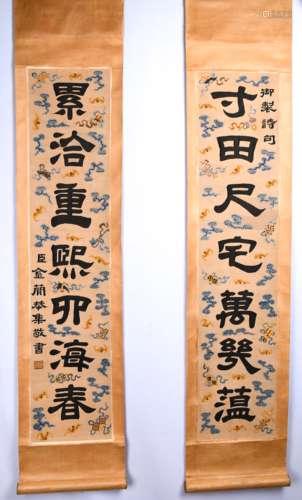 御製詩句
寸田尺宅萬幾蘊
累洽重熙卯海春
臣金蕳恭集敬書